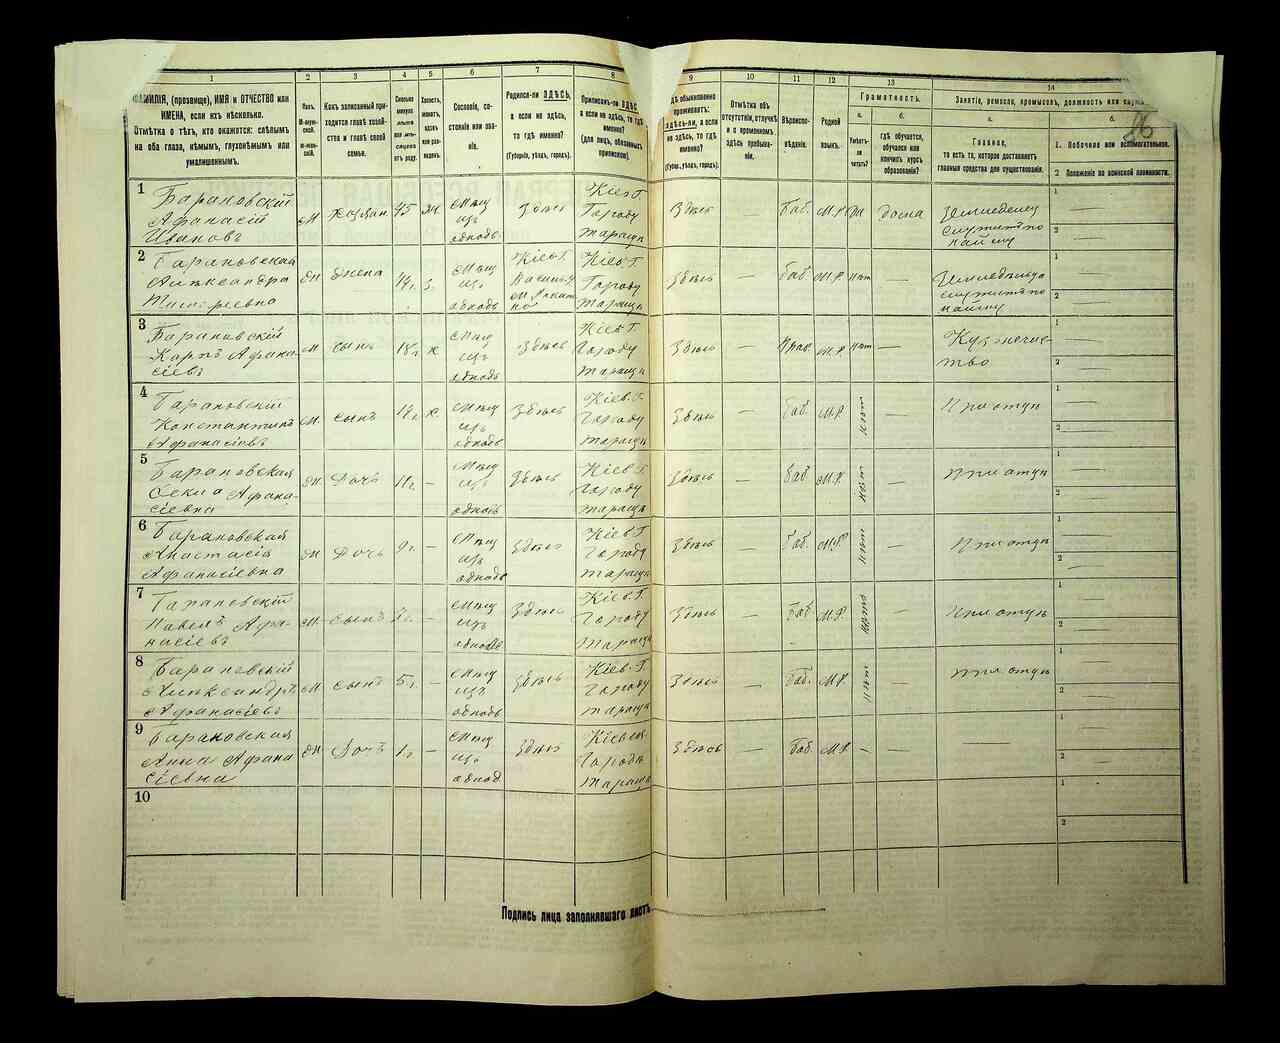 1 2 3 4 5 6 7 8 9 10 11 12 13 14
ФАМИЛІЯ, (прозвище), ИМЯ и ОТЧЕСТВО или
ИМЕНА, если ихъ нѣсколько.
Отмѣтка о тѣхъ, кто окажется: слѣпымъ
на оба глаза, нѣмымъ, глухонѣмымъ или
умалишеннымъ.
Полъ.
М-муж-
ской.
Ж-жен-
скій.
Какъ записанный при-
ходится главѣ хозяй-
ства и главѣ своей
семьи.
Сколько
минуло
лѣтъ
или мѣс-
яцевъ
отъ роду.
Холостъ,
женатъ,
вдовъ
или раз-
веденъ.
Сословіе, со-
стояніе или зва-
ніе.
Родился-ли ЗДѢСЬ,
а если не здѣсь,
то гдѣ именно?
(Губернія, уѣздъ, городъ).
Приписанъ-ли ЗДѢСЬ
а если не здѣсь, то гдѣ
именно?
(для лицъ, обязанныхъ
припискою).
ГДѢ обыкновенно
проживаетъ:
здѣсь-ли, а если
не здѣсь, то гдѣ
именно?
(Губ., уѣздъ, городъ).
Отмѣтка объ
отсутствіи, отлучкѣ
и о временномъ
здѣсь пребыва-
ніи.
Вѣроиспо-
вѣданіе.
Родной
языкъ.
Грамотность.
а. б.
Умѣетъ-
ли
читать?
гдѣ обучается,
обучался или
кончилъ курсъ
образованія?
Занятіе, ремесло, промыселъ, должность или служба.
а. б.
Главное,
то есть то, которое доставляетъ
главныя средства для существованія.
1. Побочное или вспомогательное.
2 Положеніе по воинской повинности.
86
1 Барановскій Афанасій Ивановъ М хозяин 45 Здѣсь Кіев. Г. Городу Таращи Здѣсь — М.Р. да дома Земледелец служитъ по найму 1 — 2 —
2 Барановская Александра Ж жена Кіев. Г. Кіев. Г. Городу Таращи Здѣсь — М.Р. нѣт — служитъ по найму 1 — 2 —
3 Барановскій Карпъ Афанасіевъ М сынъ 18 г. х Здѣсь Кіев. Г. Городу Таращи Здѣсь — Прав. М.Р. нѣт — Кузнечество 1 — 2 —
4 Барановскій Константинъ Афанасіевъ М. сынъ х. Здѣсь Кіев. Г. Городу Таращи Здѣсь — М.Р. нѣт — При отцѣ 1 — 2 —
5 Барановская Афанасіевна Ж Дочь 11 г. — Здѣсь Кіев Г. Городу Таращи Здѣсь — М.Р. нѣт — При отцѣ 1 — 2 —
6 Барановская Анастасія Афанасіевна Ж Дочь 9 г. — Здѣсь Кіев. Г. Городу Таращи Здѣсь — М.Р. нѣт — При отцѣ 1 — 2 —
7 Барановскій Павелъ Афанасіевъ М. сынъ — Здѣсь Кіев. Г. Городу Таращи Здѣсь — М.Р. — При отцѣ 1 — 2 —
8 Барановскій Александръ Афанасіевъ М сынъ 5 г. — Здѣсь Кіев. Г. Городу Таращи Здѣсь — М.Р. нѣт — При отцѣ 1 — 2 —
9 Барановская Анна Афанасіевна Ж Дочь 1 г. — Здѣсь Городу Таращи Здѣсь — М.Р. — — — 1 — 2 —
10 1 2
Подпись лица заполнявшаго листъ